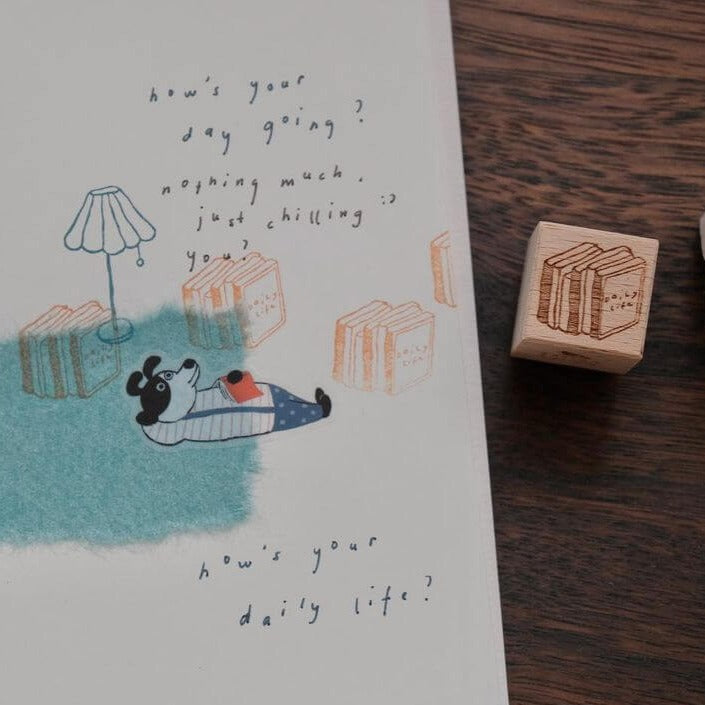 how's your
day going?
nothing much.
just chilling :)
you?
daily
life
daily
life
daily
life
daily
life
how's your
daily life?